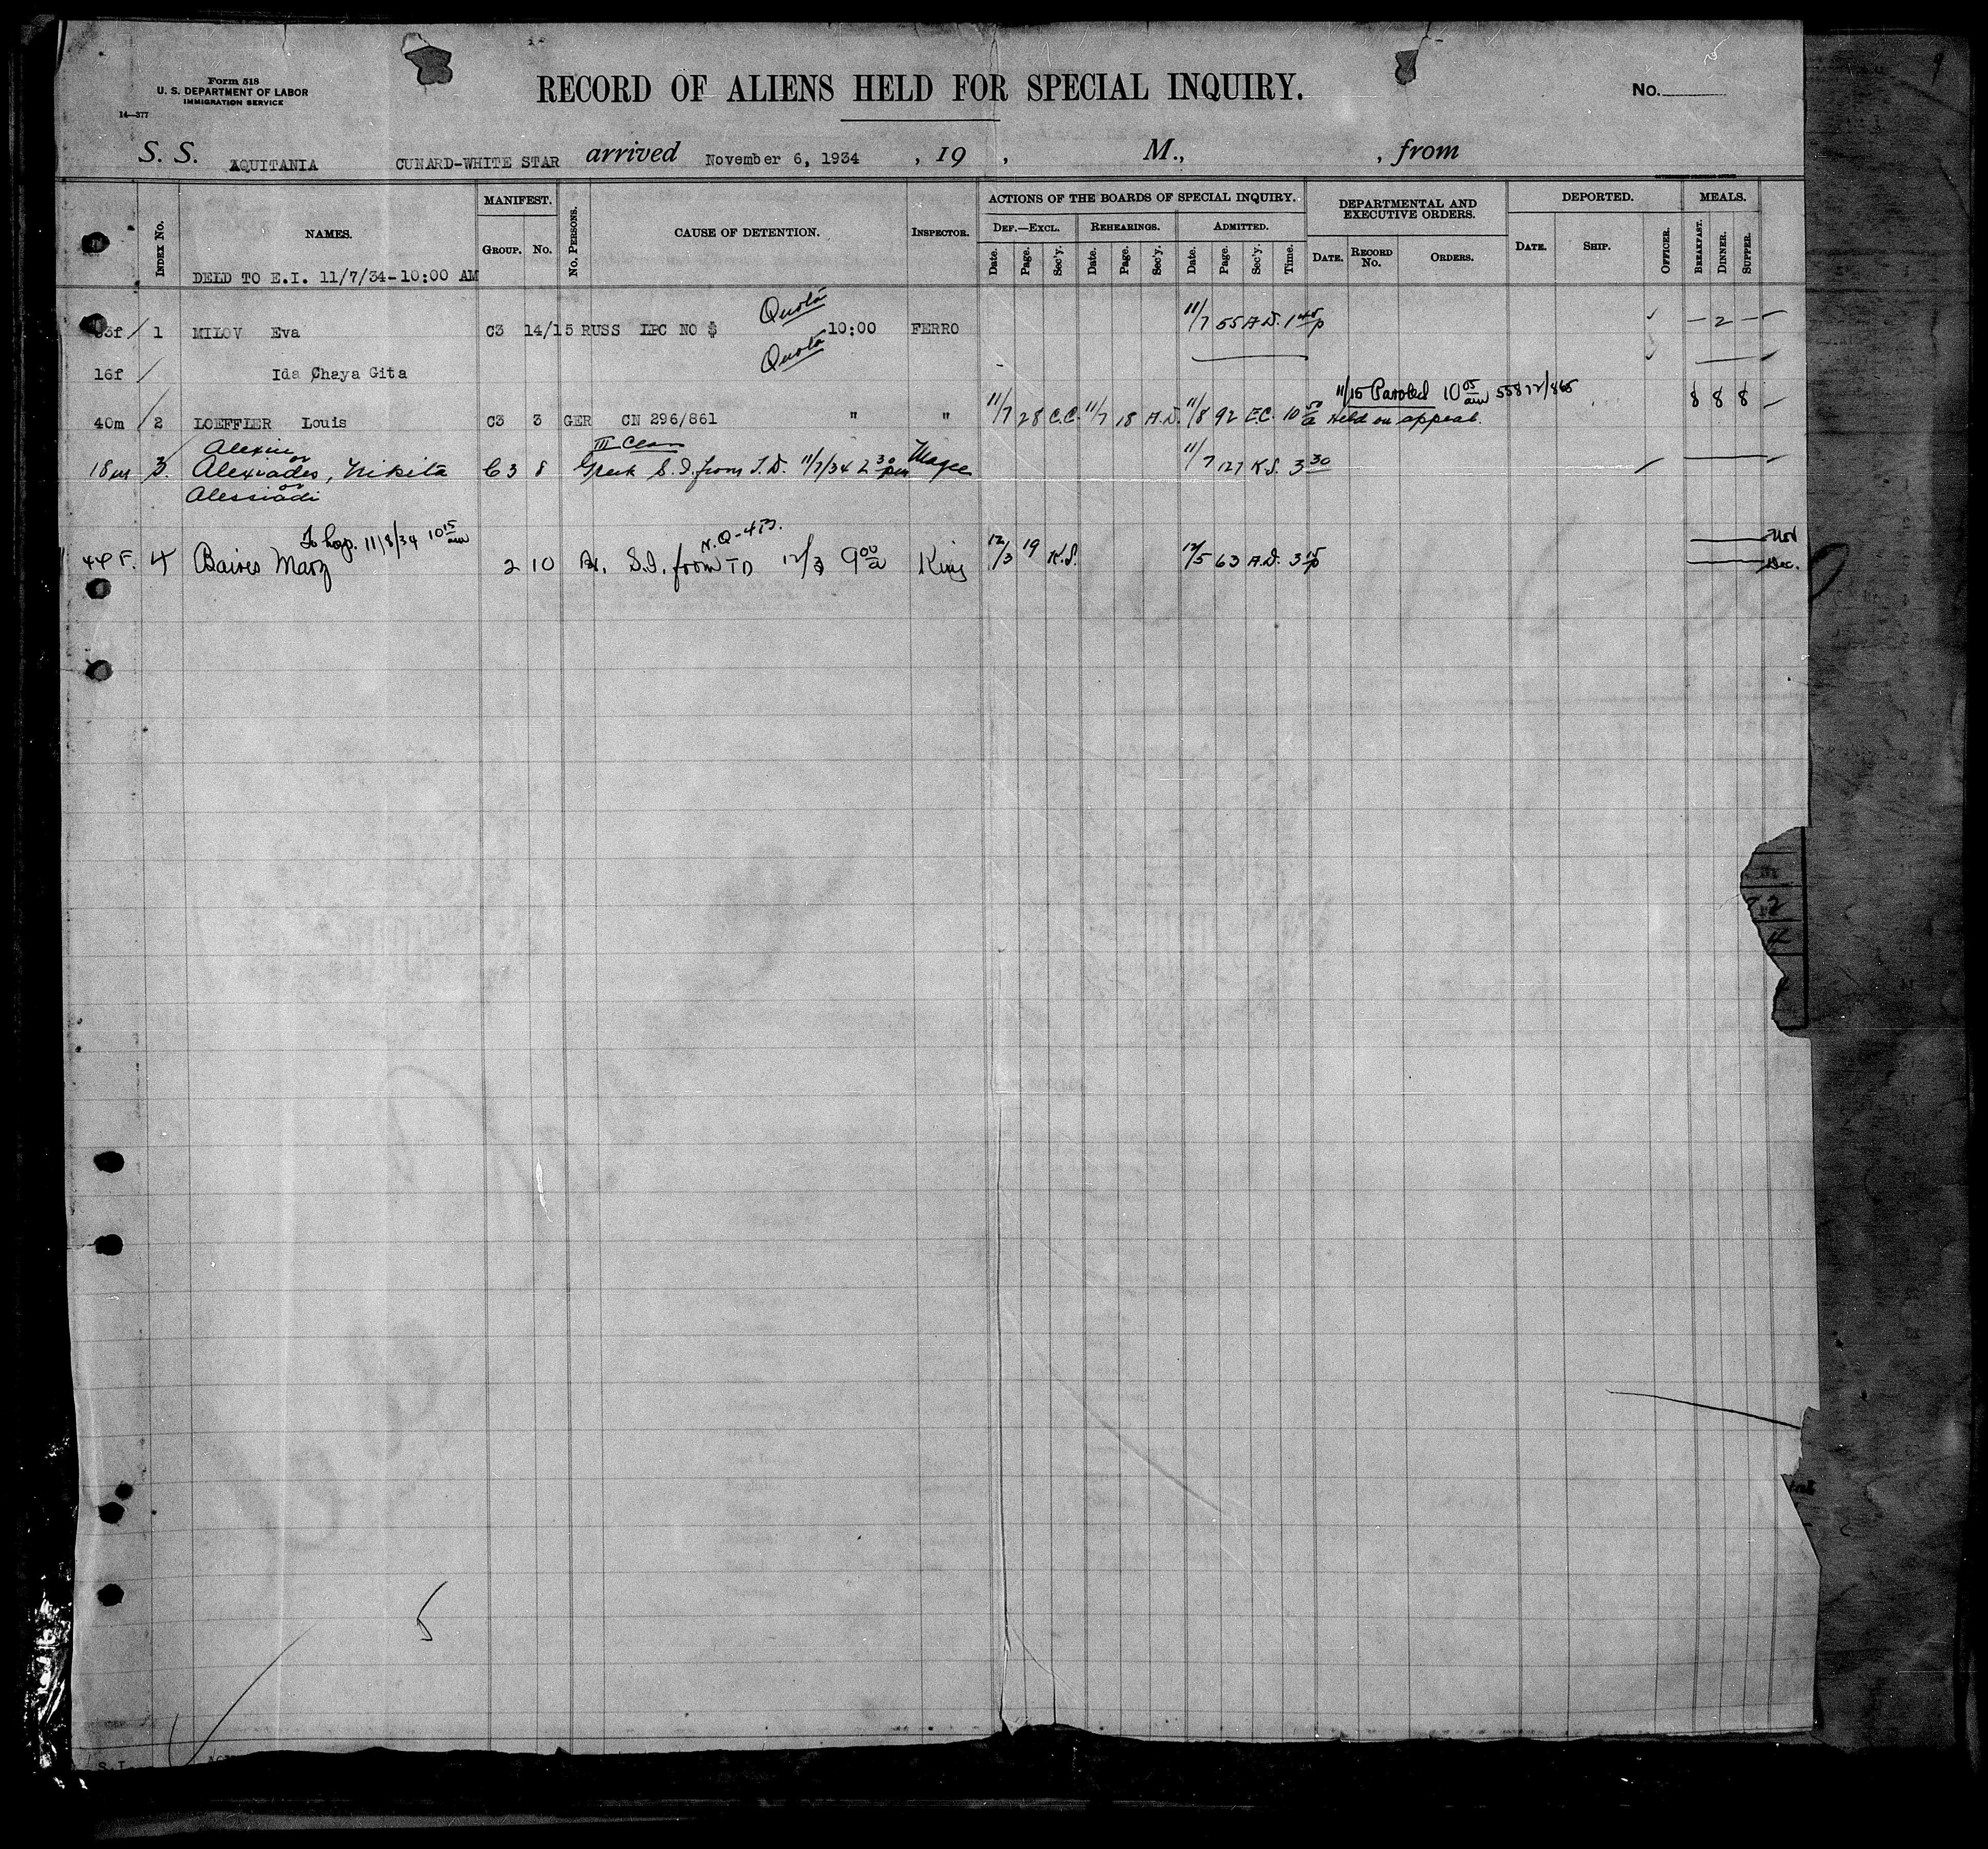 Form 518
U. S. DEPARTMENT OF LABOR
IMMIGRATION SERVICE
14—377
RECORD OF ALIENS HELD FOR SPECIAL INQUIRY.
No.
S. S. AQUITANIA CUNARD-WHITE STAR arrived November 6, 1934 , 19 , M., , from
INDEX No. NAMES. MANIFEST. GROUP. No. No. PERSONS. CAUSE OF DETENTION. INSPECTOR. ACTIONS OF THE BOARDS OF SPECIAL INQUIRY. DEPARTMENTAL AND EXECUTIVE ORDERS. DEPORTED. MEALS.
DEF.—EXCL. REHEARINGS. ADMITTED.
Date. Page. Sec'y. Date. Page. Sec'y. Date. Page. Sec'y. Time. DATE. RECORD No. ORDERS. DATE. SHIP. OFFICER. BREAKFAST. DINNER. SUPPER.
DELD TO E.I. 11/7/34-10:00 AM
Quota
3f 1 MILOV Eva C3 14/15 RUSS LPC NO $ 10:00 FERRO 11/7 55 A.D. 1 45 p – 2 –
Quota
16f Ida Chaya Gita
11/15 Paroled 10 05 am 55872/865
40m 2 LOEFFLER Louis C3 3 GER CN 296/861 " " 11/7 28 C.C. 11/7 18 A.D. 11/8 92 E.C. 10 50 a Held on appeal. 8 8 8
Alexiu or III Class
18m 3. Alexiades, Nikita C3 8 Greek S.I. from T.D. 11/7/34 2 30 pm Magee 11/7 127 K.S. 3 30
or
Alessiadi
To hosp. 11/8/34 10 15 am N.Q-4B. Nov
44 F. 4 Baires Mary 2 10 S.I. from TD 12/3 9 00 a King 12/3 19 K.S. 12/5 63 A.D. 3 15 p Dec.
7 2
4
5
S.I.